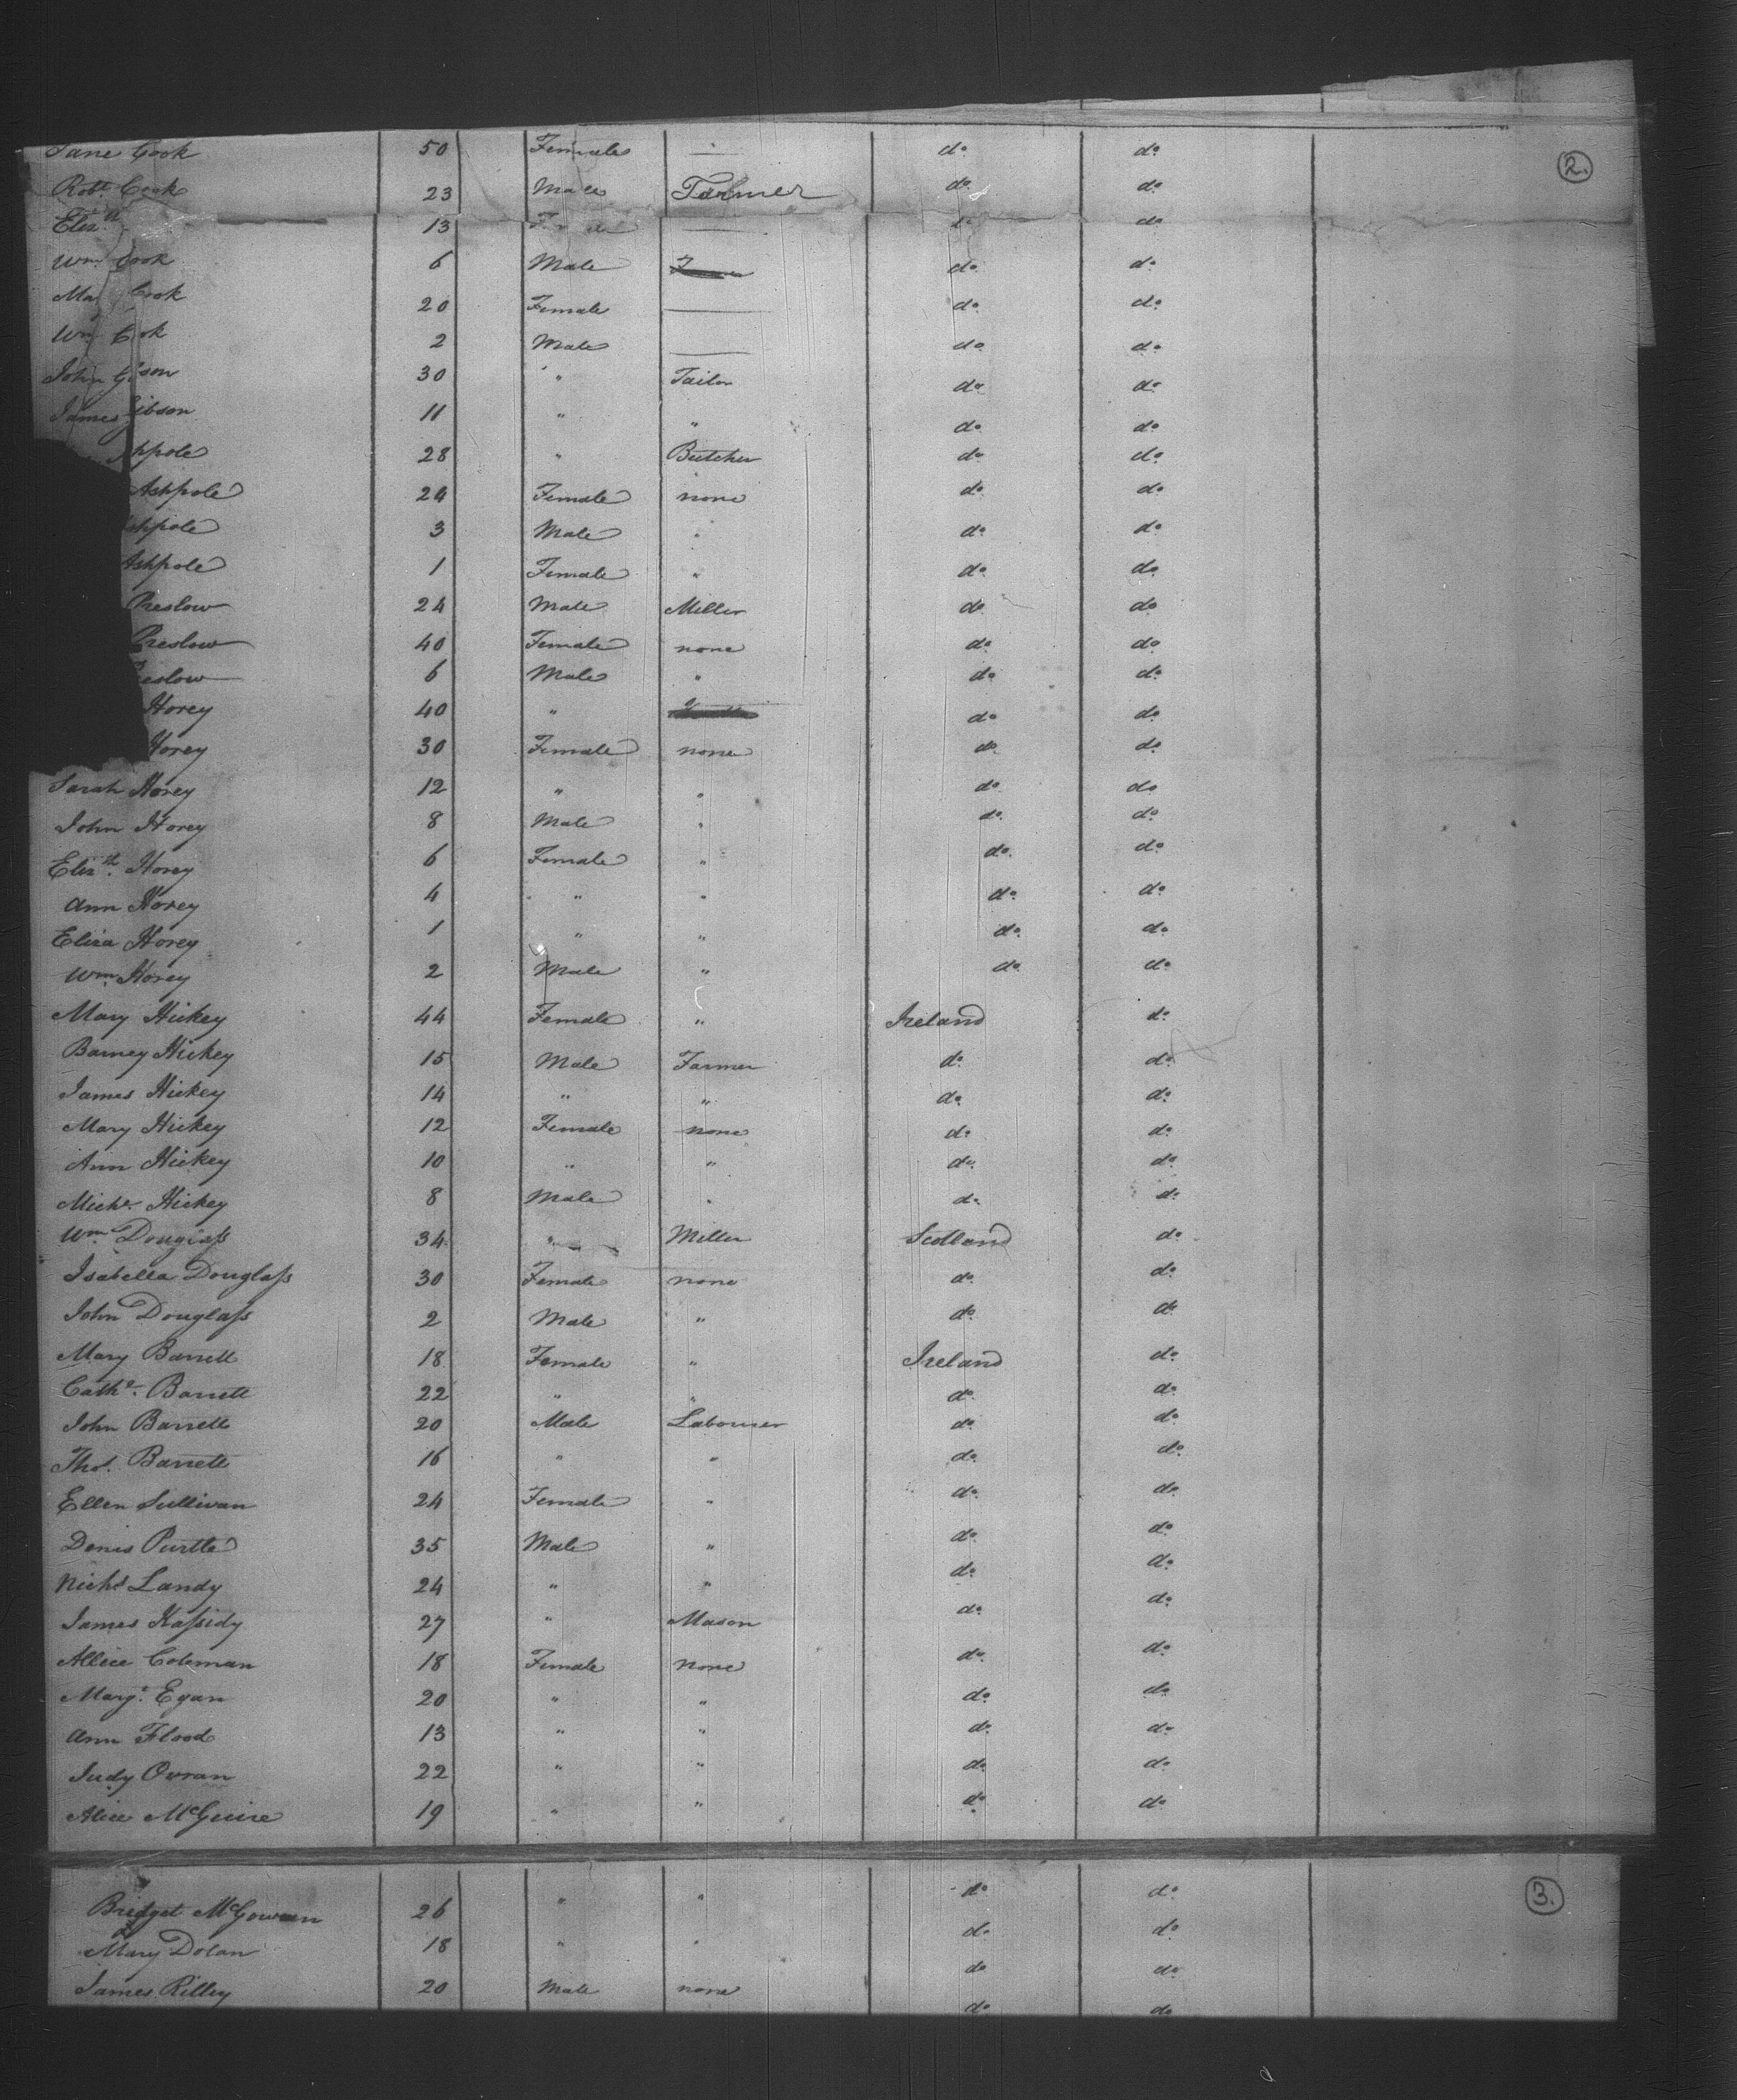 Jane Cook 50 Female " do do 2.
Robt. Cook 23 Male Farmer do do
Elizth 13 do do
Wm Cook 6 Male do do
Cook 20 Female do do
Wm 2 Male do do
John 30 " Tailor do do
James Gibson 11 " " do do
28 " Butcher do do
Ashpole 24 Female none do do
Ashpole 3 Male " do do
Ashpole 1 Female " do do
Preslow 24 Male Miller do do
Preslow 40 Female none do do
Preslow 6 Male " do do
Horey 40 " do do
Horey 30 Female none do do
Sarah Horey 12 " " do do
John Horey 8 Male " do do
Elizth. Horey 6 Female " do do
Ann Horey 4 " " do do
Eliza Horey 1 " " do do
Wm. Horey 2 Male " do do
Mary Hickey 44 Female " Ireland do
Barney Hickey 15 Male Farmer do do
James Hickey 14 " " do do
Mary Hickey 12 Female none do do
Ann Hickey 10 " " do do
Michl. Hickey 8 Male " do do
Wm. Douglass 34 " Miller Scotland do
Isabella Douglass 30 Female none do do
John Douglass 2 Male " do do
Mary Barrett 18 Female " Ireland do
Cathe. Barrett 22 " " do do
John Barrett 20 Male Labourer do do
Thos. Barrett 16 " " do do
Ellen Sullivan 24 Female " do do
Denis Purtle 35 Male " do do
Nichs Landy 24 " " do do
James Kassidy 27 " Mason do do
Allice Coleman 18 Female none do do
Margt. Egan 20 " " do do
Ann Flood 13 " " do do
Judy Owran 22 " " do do
Alice McGuire 19 " " do do
Bridget McGowran 26 " " do do 3.
Mary Dolan 18 " " do do
James Rilley 20 Male none do do
do do